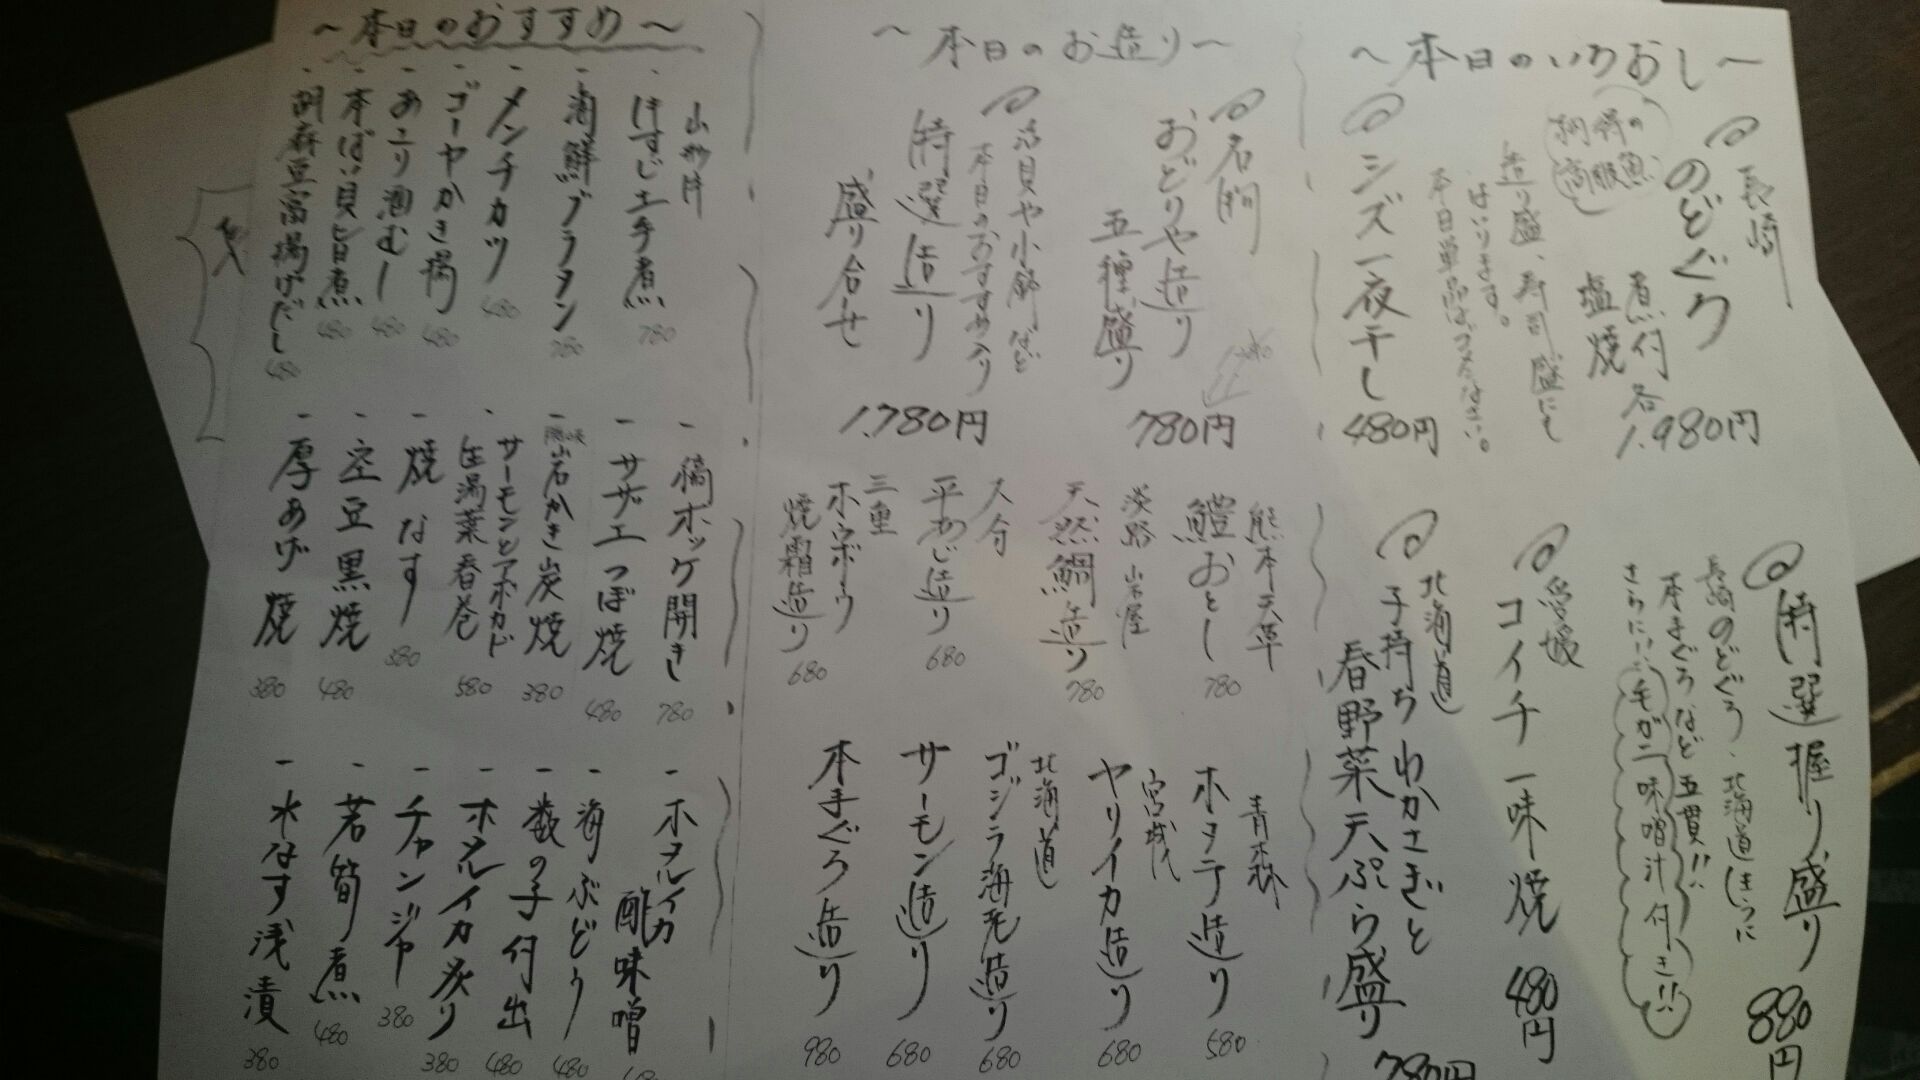 〜本日のいちおし〜
長崎
のどぐろ
煮付
塩焼
各1.980円
造り盛、寿司盛にも
はいります。
本日単品はゴメンなさい。
シズ一夜干し
480円
特選握り盛り
880円
長崎のどぐろ、北海道うに
本まぐろなど五貫!!
さらに!!毛ガニ味噌汁付き!!
愛媛
コイチ一味焼
480円
北海道
子持ちわかさぎと
春野菜天ぷら盛り
780円
〜本日のお造り〜
名物
おどりや造り
五種盛り
780円
活貝や小鉢など
本日のおすすめ入り
特選造り
盛り合せ
1.780円
熊本天草
鱧おとし
780
淡路岩屋
天然鯛造り
780
大分
平あじ造り
680
三重
ホウボウ
焼霜造り
680
青森
ホタテ造り
580
宮城
ヤリイカ造り
680
北海道
ゴジラ海老造り
680
サーモン造り
680
本まぐろ造り
980
〜本日のおすすめ〜
牛すじ土手煮
780
海鮮グラタン
780
メンチカツ
480
ゴーヤかき揚
480
あさり酒むし
480
本ばい貝旨煮
480
胡麻豆富揚げだし
480
縞ホッケ開き
780
サザエつぼ焼
480
岩かき炭焼
380
サーモンとアボカド
生湯葉春巻
580
焼なす
380
空豆黒焼
480
厚あげ焼
380
ホタルイカ
酢味噌
海ぶどう
480
数の子付出
480
ホタルイカ炙り
380
チャンジャ
380
若筍煮
480
水なす浅漬
380